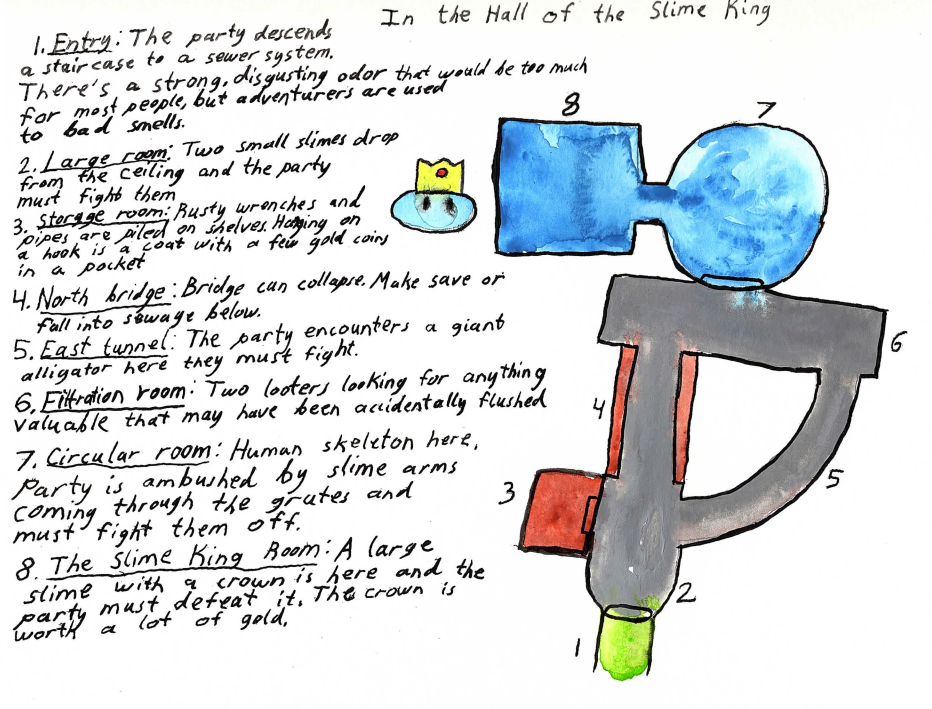 In the Hall of the Slime King
1. Entry: The party descends
a staircase to a sewer system.
There's a strong, disgusting odor that would be too much
for most people, but adventurers are used
to bad smells.
2. Large room: Two small slimes drop
from the ceiling and the party
must fight them
3. Storage room: Rusty wrenches and
pipes are piled on shelves. Hanging on
a hook is a coat with a few gold coins
in a pocket
4. North bridge: Bridge can collapse. Make save or
fall into sewage below.
5. East tunnel: The party encounters a giant
alligator here they must fight.
6. Filtration room: Two looters looking for anything
valuable that may have been accidentally flushed
7. Circular room: Human skeleton here.
Party is ambushed by slime arms
coming through the grates and
must fight them off.
8. The Slime King Room: A large
slime with a crown is here and the
party must defeat it. The crown is
worth a lot of gold.
8
7
6
4
5
3
2
1